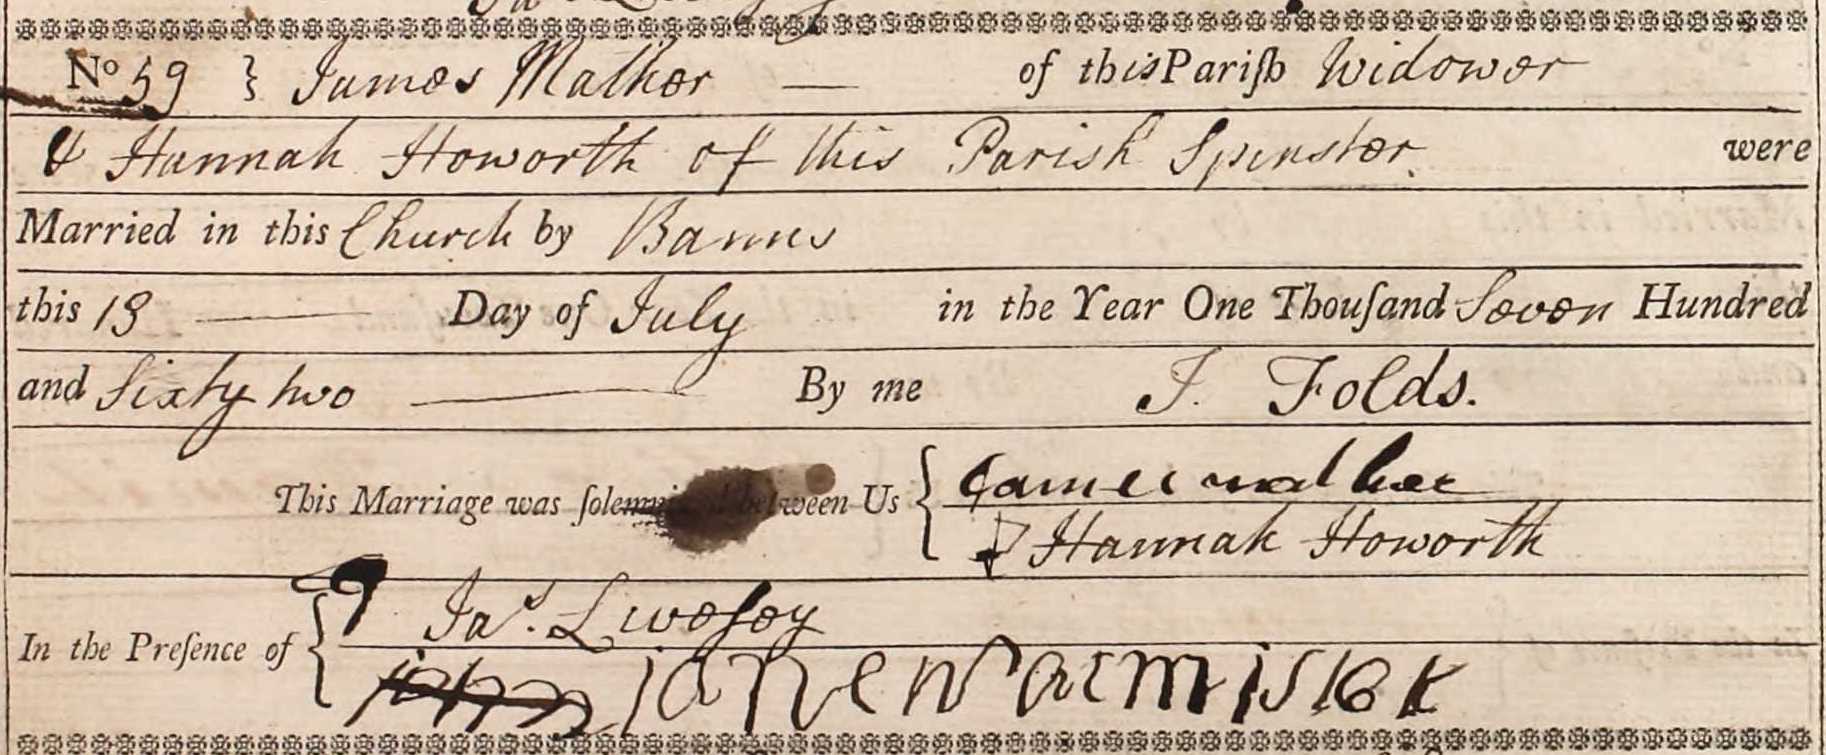 No 59 } James Mather — of this Pariſh Widower
& Hannah Howorth of this Parish Spinster. were
Married in this Church by Banns
this 13 — Day of July in the Year One Thouſand Seven Hundred
and Sixty two — By me J. Folds.
This Marriage was ſolemnized between Us { James mather
Hannah Howorth
In the Preſence of { Jas. Livesey